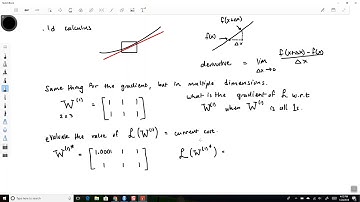 . 1d calculus
f(x+Δx)
f(x)
Δx
derivative = lim Δx→0 f(x+Δx) - f(x) / Δx
Same thing for the gradient, but in multiple dimensions.
W⁽¹⁾ = [1 1 1
1 1 1]
2×3
what is the gradient of L w.r.t
W⁽¹⁾ when W⁽¹⁾ is all 1s.
evaluate the value of L(W⁽¹⁾) = current cost.
W⁽¹⁾* = [1.0001 1 1
1 1 1]
L(W⁽¹⁾*) =